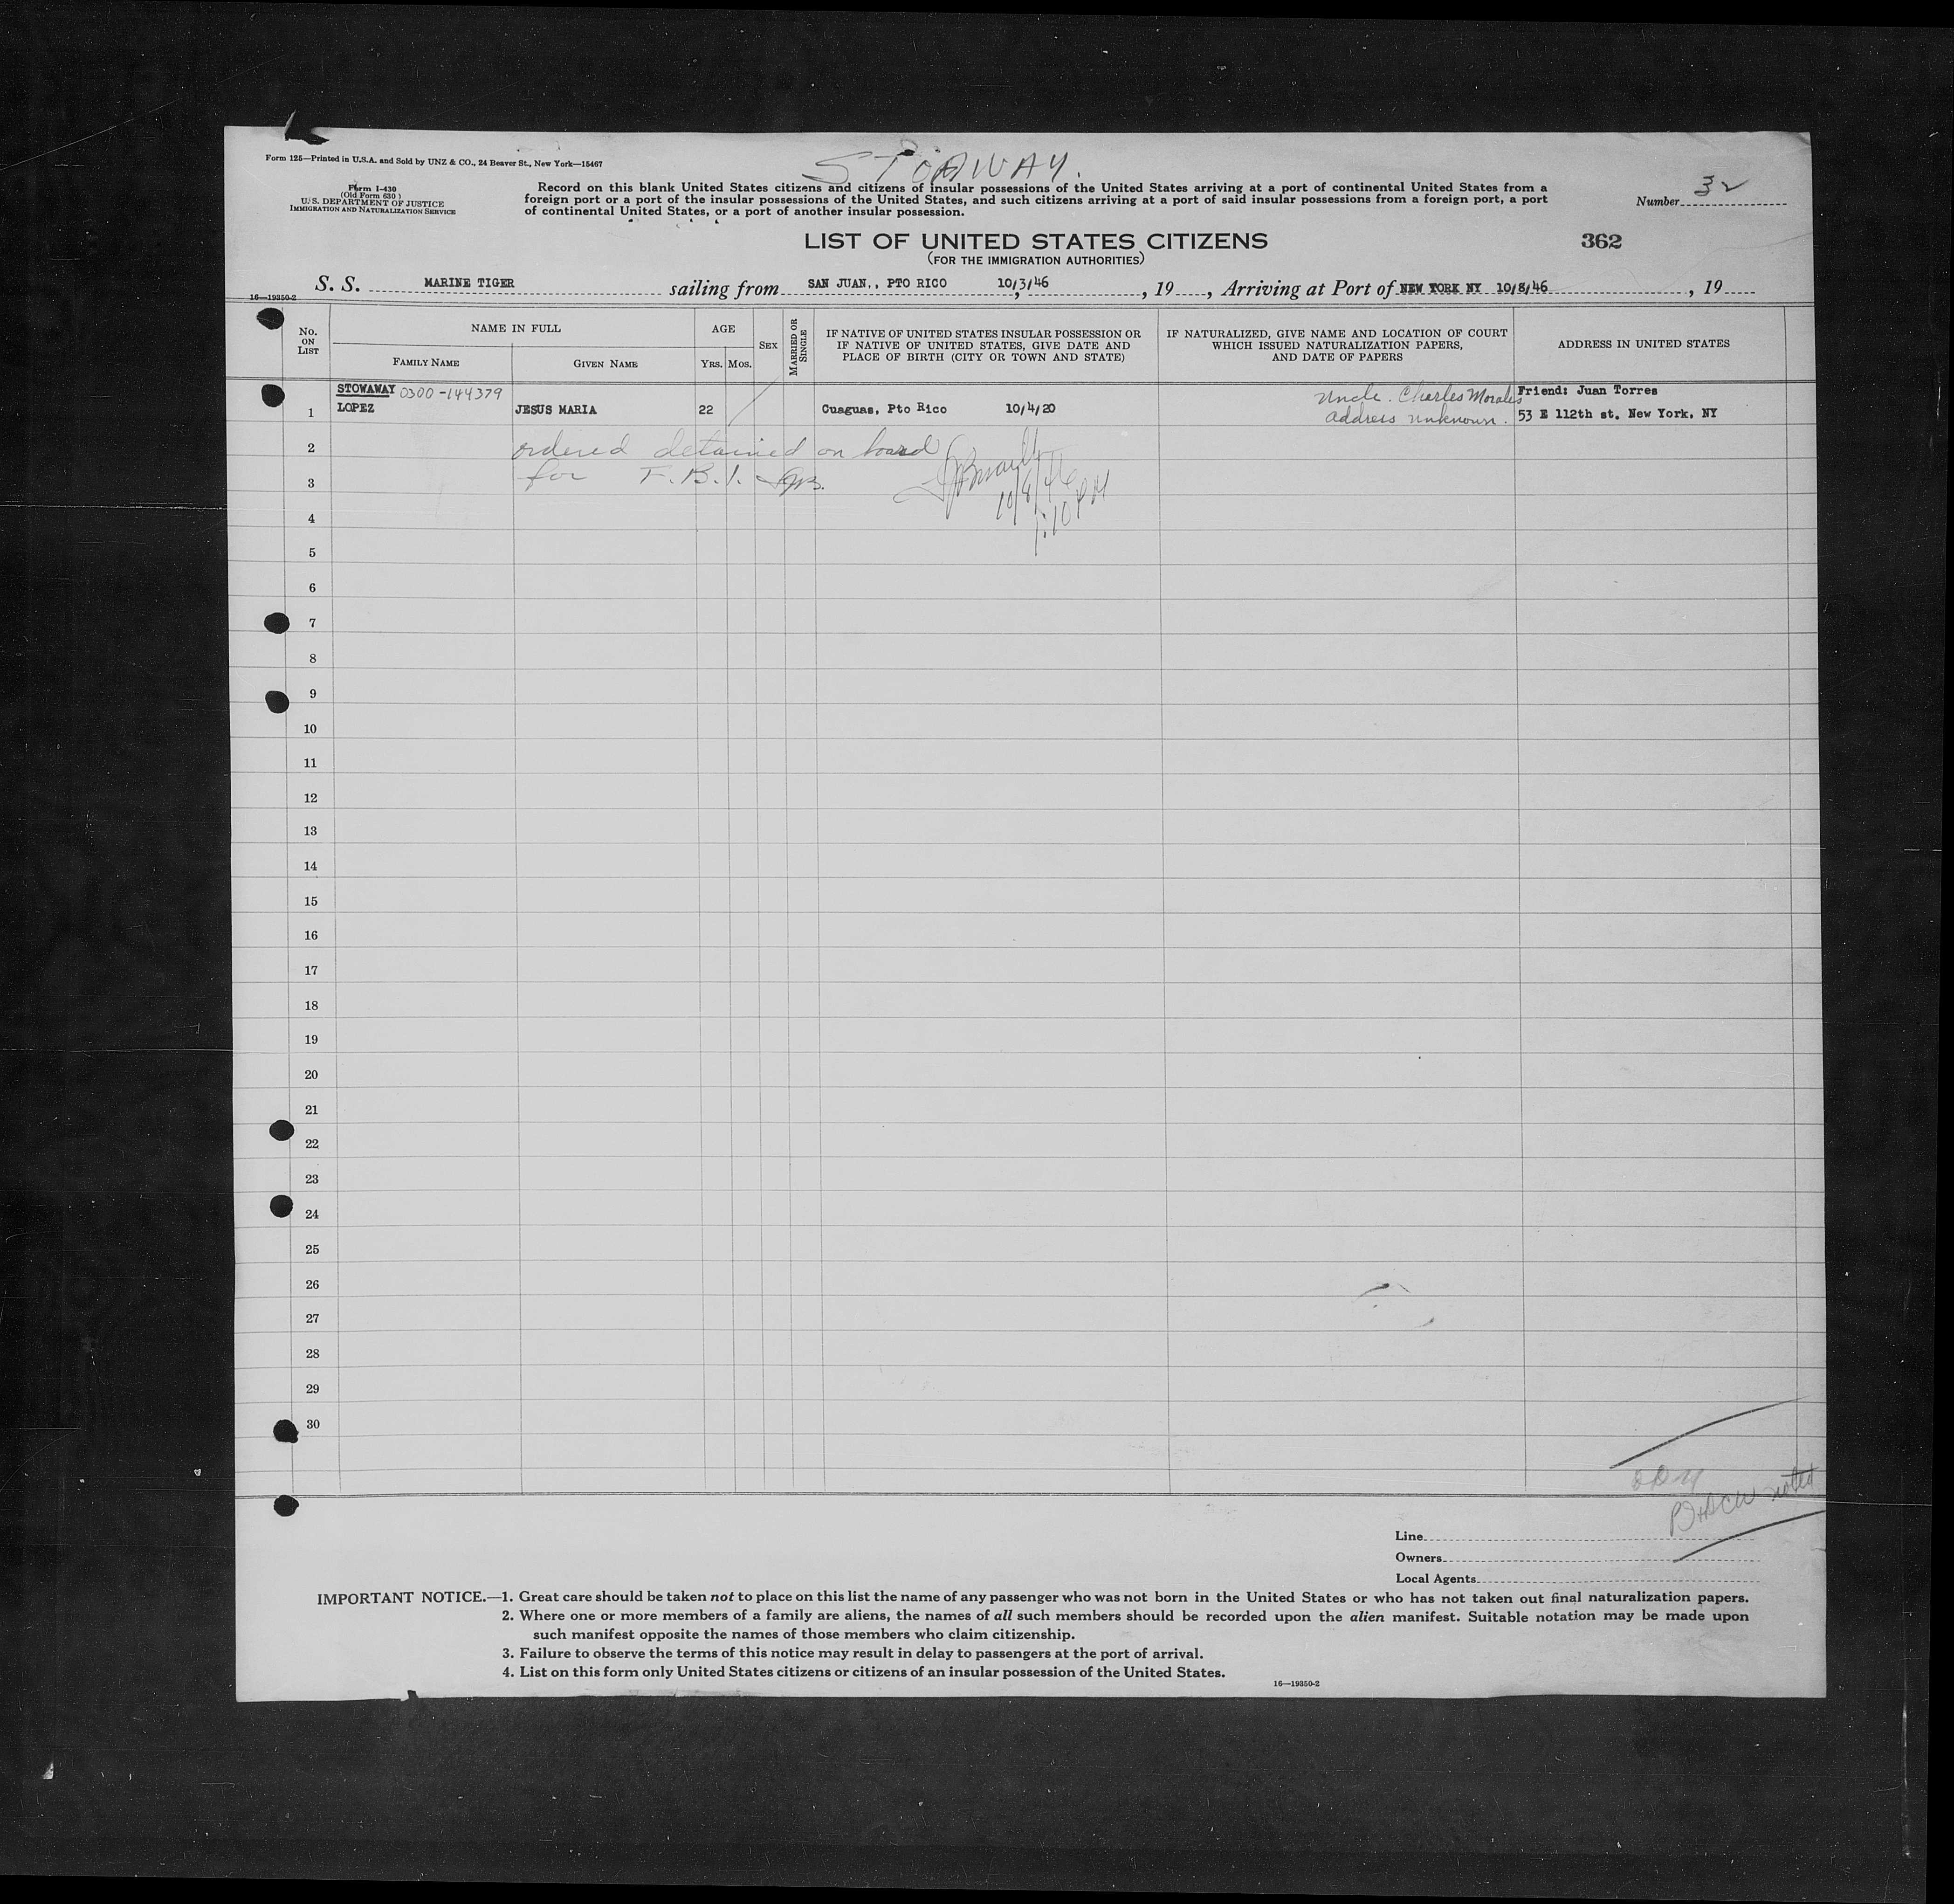 STOAWAY.
Form 125—Printed in U.S.A. and Sold by UNZ & CO., 24 Beaver St., New York—15467
Form I-430
(Old Form 630)
U.S. DEPARTMENT OF JUSTICE
IMMIGRATION AND NATURALIZATION SERVICE
Record on this blank United States citizens and citizens of insular possessions of the United States arriving at a port of continental United States from a
foreign port or a port of the insular possessions of the United States, and such citizens arriving at a port of said insular possessions from a foreign port, a port
of continental United States, or a port of another insular possession.
Number 32
LIST OF UNITED STATES CITIZENS
362
(FOR THE IMMIGRATION AUTHORITIES)
S. S. MARINE TIGER sailing from SAN JUAN., PTO RICO 10/3/46, 19, Arriving at Port of NEW YORK NY 10/8/46, 19
16—19350-2
No. ON LIST
NAME IN FULL
FAMILY NAME
GIVEN NAME
AGE
YRS. MOS.
SEX
MARRIED OR SINGLE
IF NATIVE OF UNITED STATES INSULAR POSSESSION OR
IF NATIVE OF UNITED STATES, GIVE DATE AND
PLACE OF BIRTH (CITY OR TOWN AND STATE)
IF NATURALIZED, GIVE NAME AND LOCATION OF COURT
WHICH ISSUED NATURALIZATION PAPERS,
AND DATE OF PAPERS
ADDRESS IN UNITED STATES
STOWAWAY 0300-144379 Uncle. Charles Morales Friend: Juan Torres
1 LOPEZ JESUS MARIA 22 Cuaguas, Pto Rico 10/4/20 address unknown. 53 E 112th st. New York, NY
2 ordered detained on board
3 for F.B.I. 10/8/46
4 1:10 PM
5
6
7
8
9
10
11
12
13
14
15
16
17
18
19
20
21
22
23
24
25
26
27
28
29
30
noted
Line
Owners
Local Agents
IMPORTANT NOTICE.—1. Great care should be taken not to place on this list the name of any passenger who was not born in the United States or who has not taken out final naturalization papers.
2. Where one or more members of a family are aliens, the names of all such members should be recorded upon the alien manifest. Suitable notation may be made upon
such manifest opposite the names of those members who claim citizenship.
3. Failure to observe the terms of this notice may result in delay to passengers at the port of arrival.
4. List on this form only United States citizens or citizens of an insular possession of the United States.
16—19350-2